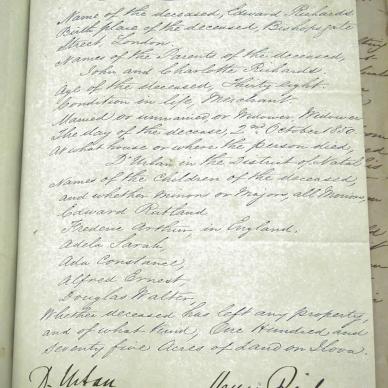 Name of the deceased, Edward Richards
Birth place of the deceased, Bishopsgate
Street, London.
Names of the Parents of the deceased,
John and Charlotte Richards
Age of the deceased, Thirty eight.
Condition in life, Merchant
Married or unmarried, or Widower, Widower
The day of the decease, 2nd October 1850
At what house or where the person died,
D'Urban in the District of Natal
Names of the Children of the deceased,
and whether Minors or Majors, all Minors,
Edward Rutland
Frederic Arthur, in England.
Adela Sarah,
Ada Constance,
Alfred Ernest
Douglas Walter,
Whether deceased has left any property,
and of what kind, One Hundred and
Seventy five Acres of land on Illovo.
D'Urban